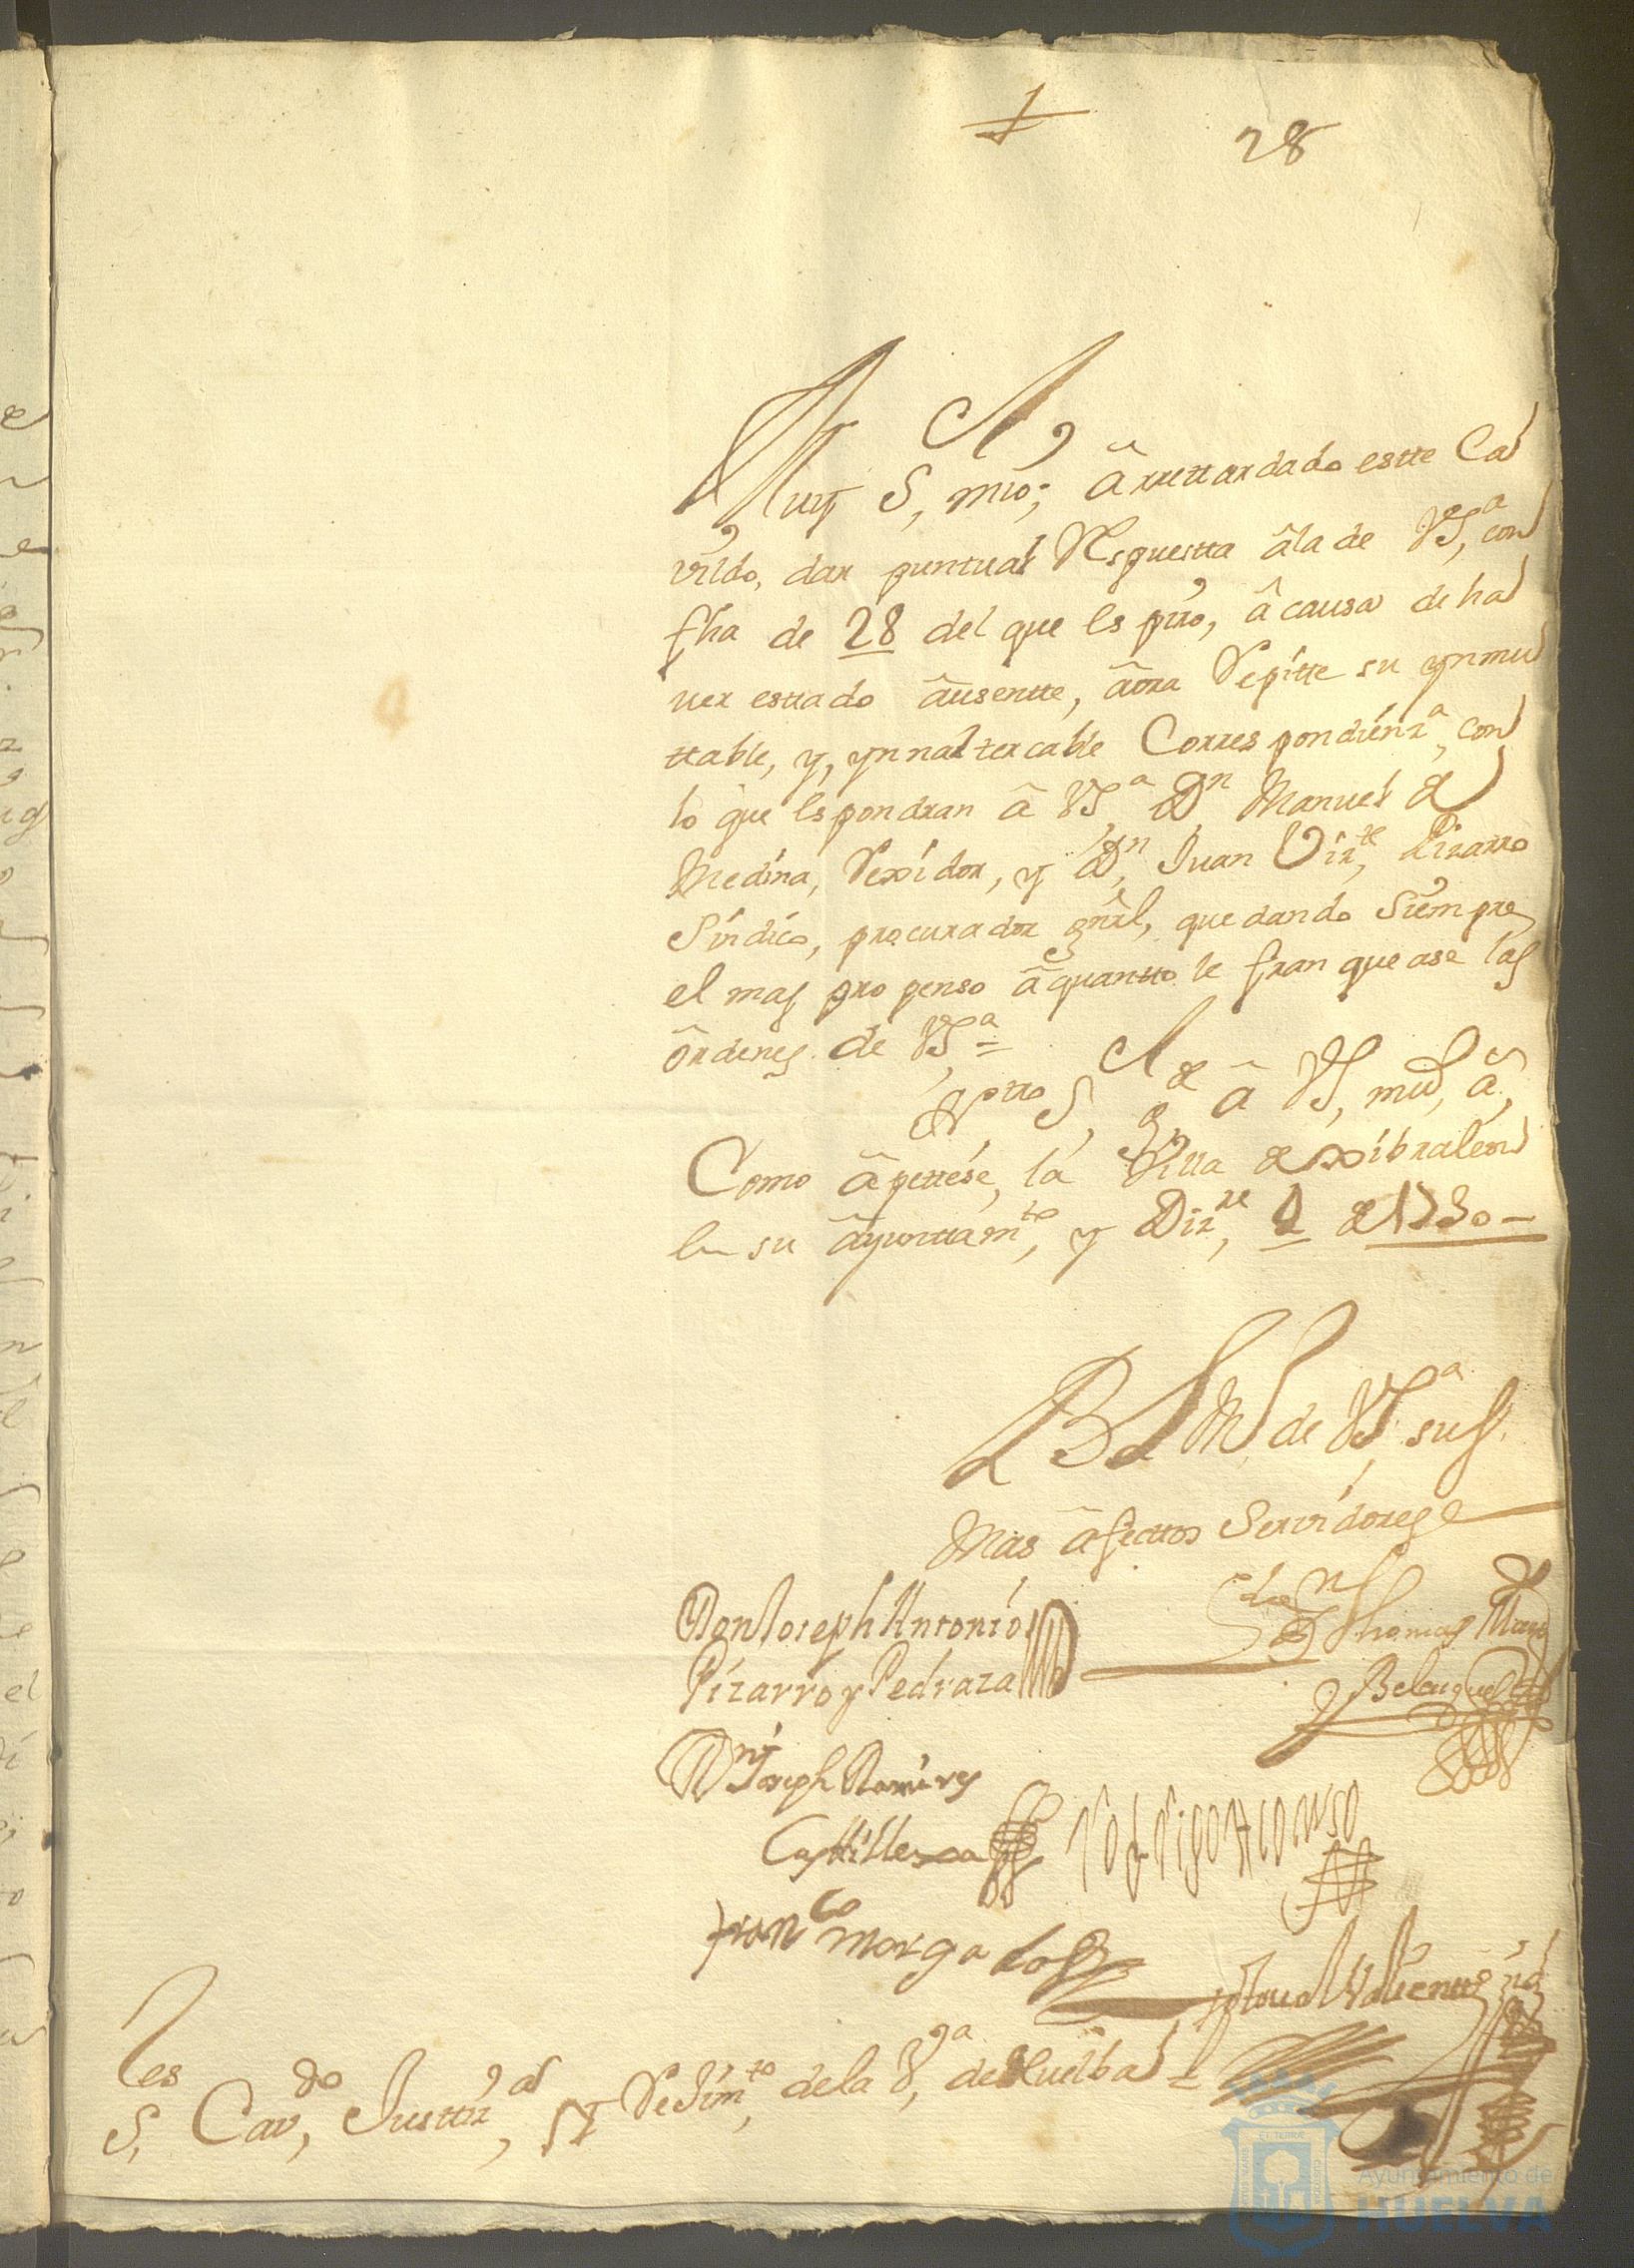 28
Muy S.r mio; â rrettardado estte Ca
vildo, dar puntual Respuestta âla de VS,a con
fha de 28 del que es pido, â causa de ha
ver estado âusentte, âora Repitte su ynmu
ttable, y, ynnaltercable Correspondienz,a con
lo que espondran â VS,a Dn Manuel de
Medina, Rexidor, y Dn, Juan Viz,te Pizarro
Sindico, procurador gnrl, quedando Siempre
el mas propenso âquantto le franquease las
ôrdenes de VS,a =
N,ro S,r g,de â VS, m,s a,s
Como âpettese, la Villa de Xibraleon
en su âyunttam,to y Diz,re 2 de 1730 =
B L M de VS,a sus
Mas âfecttos Servidores
Don Joseph Antonio
Pizarro y Pedraza
Thomas
y Belazquez
Dn Joseph Ramires
Castillexa
Rodrigo Alonso
fran,co morgado
S,res Cav,do Justtiz,a y Rejim,to de la V,a de Huelba =
Ayuntamiento de
HUELVA